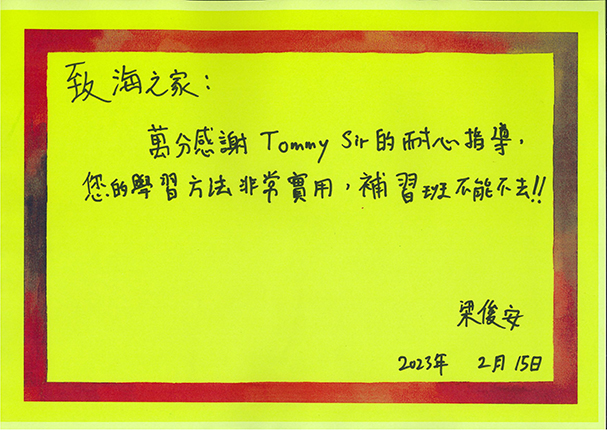 致海之家：
萬分感謝 Tommy Sir 的耐心指導，
您的學習方法非常實用，補習班不能不去!!
梁俊安
2023年 2月15日